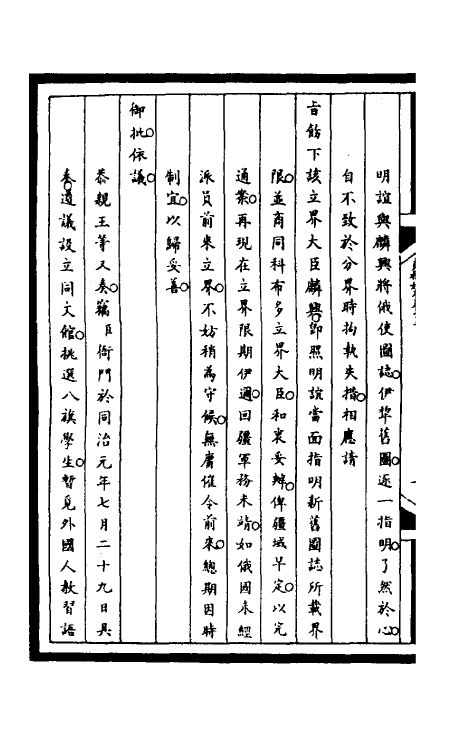 明誼與麟興將俄使圖誌。伊犂舊圖。逐一指明。了然於心。
自不致於分界時拘執失措。相應請
旨飭下該立界大臣麟興。即照明誼當面指明新舊圖誌所載界
限。並商同科布多立界大臣。和衷妥辦。俾疆域早定。以完
通案。再現在立界限期伊邇。回疆軍務未靖。如俄國未經
派員前來立界。不妨稍為守候。無庸催令前來。總期因時
制宜。以歸妥善。
御批。依議。
恭親王等又奏。竊臣衙門於同治元年七月二十九日具
奏。遵議設立同文館。挑選八旗學生。暫覓外國人教習語